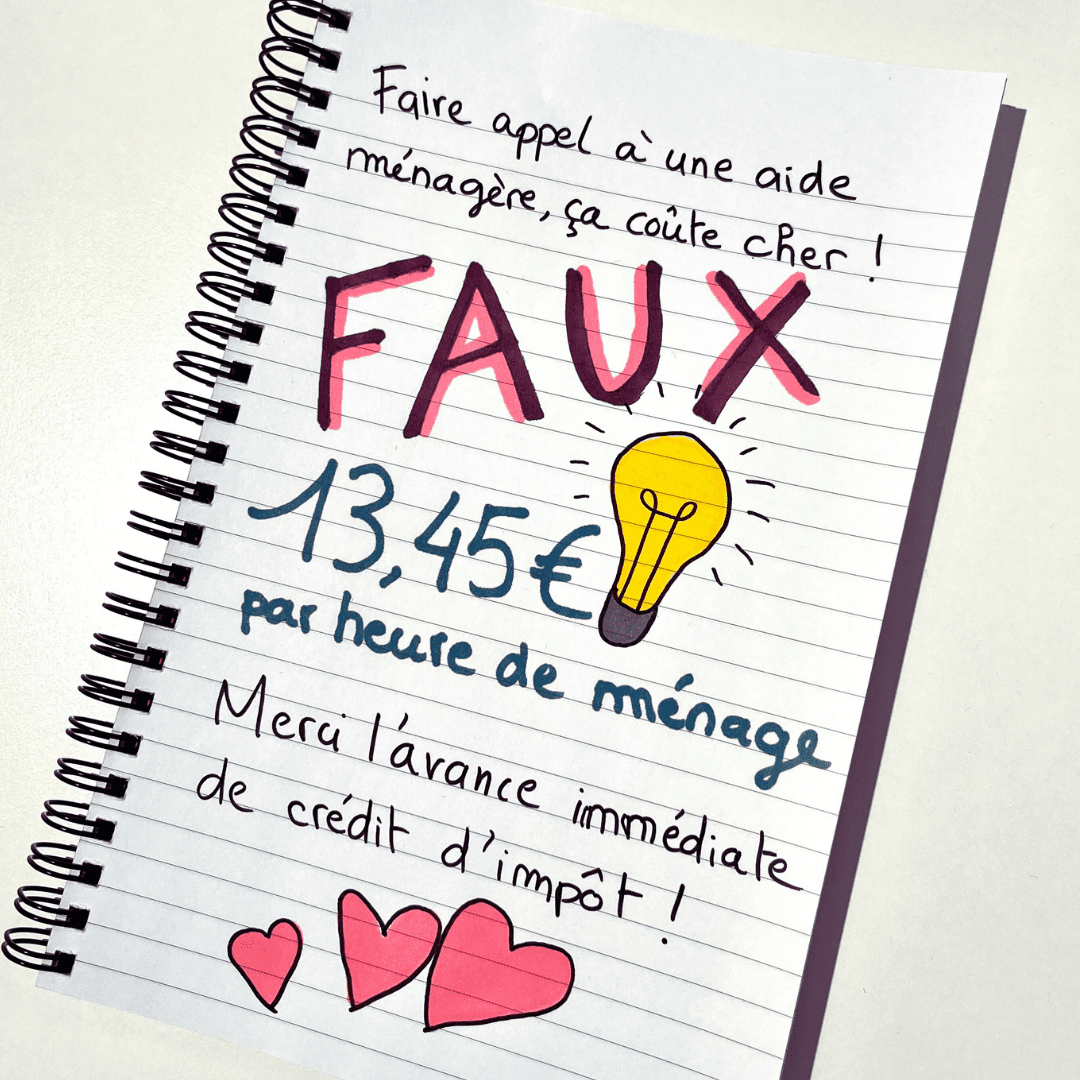 Faire appel à une aide
ménagère, ça coûte cher !
FAUX
13,45€
par heure de ménage
Merci l'avance immédiate
de crédit d'impôt !